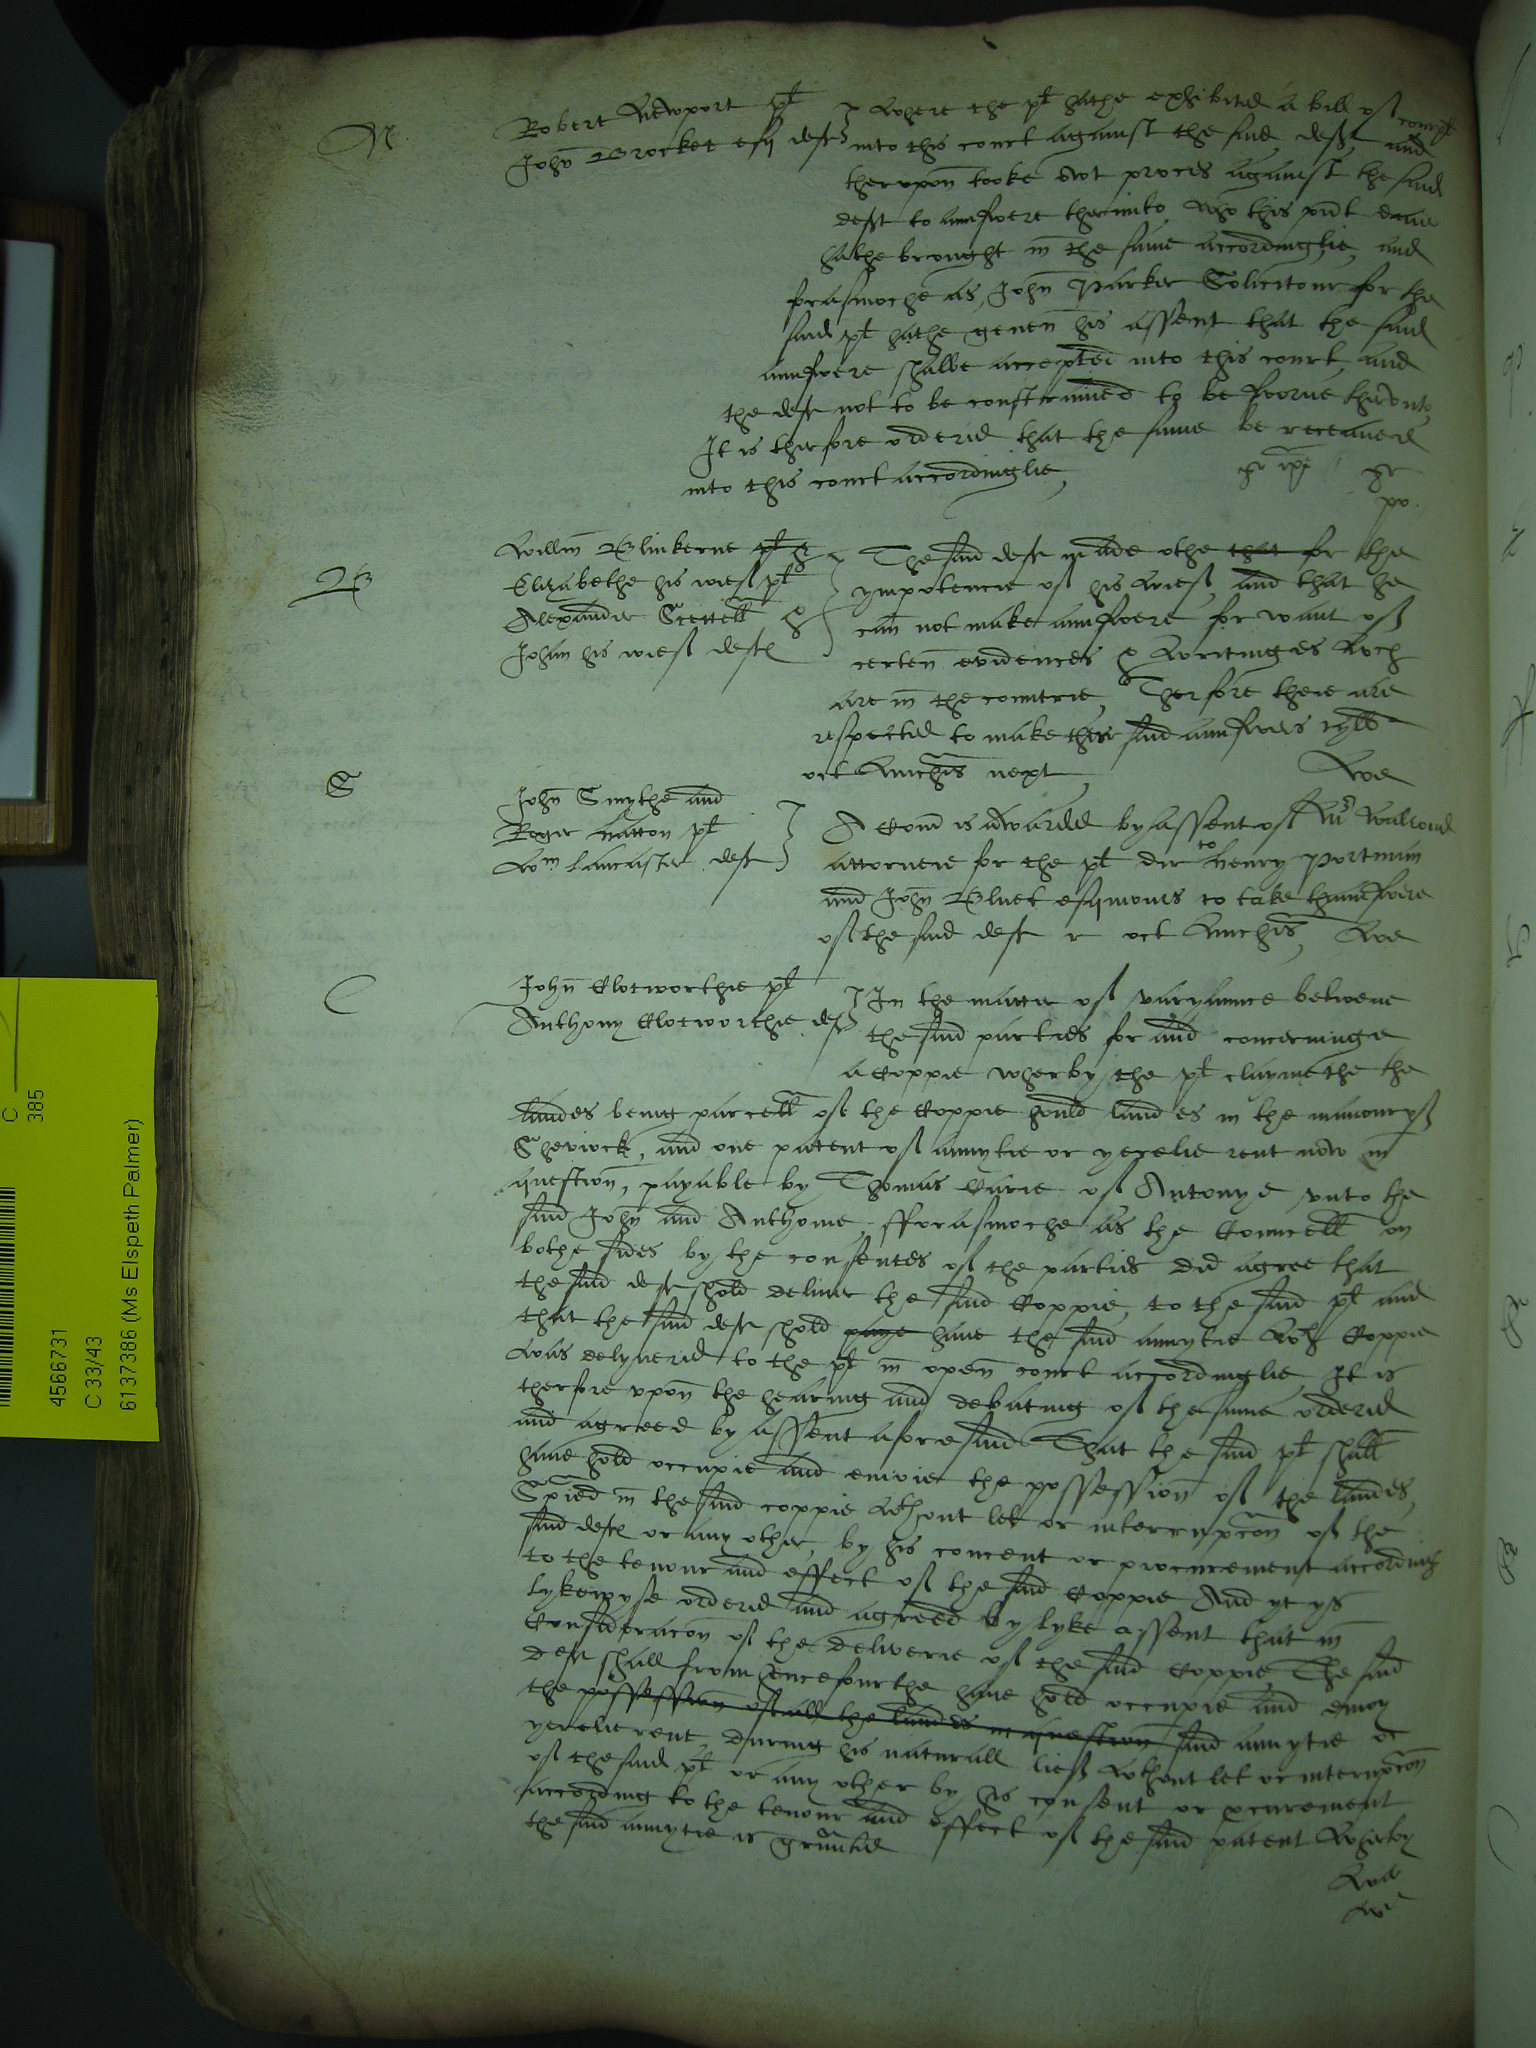 N
Robert Newport pl
John Brocket esq deft
Where the pl hathe exhibited a bill of compl
into this court against the said deft and
therupon tooke owt proces against the said
deft to aunswere therunto who this pñt daie
hathe brought in the same accordinglie, and
forasmoche as John Parker Solicitour for the
said pl hathe geven his assent that the said
aunswere shalbe accepted into this court and
the deft not to be constrained to be sworne therunto
It is therfore ordered that the same be receaved
into this court accordinglie,
B
Willm Blinkerne pl &
Elizabethe his wief pl
Alexander &
Johan his wief deftes
The said deft made othe that for the
ympotencie of his wief, and that he
can not make aunswere for want of
certen evidences & writinges wch
are in the countrie, Therfore there are
respected to make their said aunswers tyll
oct Michis next
S
John Smythe and
Roger Hatton pl
Wm Lancaster deft
A Comñ is awarded by assent of Mr Walrond
attorneie for the pl dir to Henry Portman
and John Bluet esquioures to take thaunswere
of the said deft r oct Michis,
C
John Clotworthie pl
Anthony Clotworthie deft
In the matter of varyaunce betwene
the said parties for and concerninge
a Coppie wherby the pl claymethe the
landes being parcell of the Coppie hould landes in the mannour of
Sheviock, and one patent of annytie or yerelie rent now in
question, payable by Thomas Carie of Antonye unto the
said John and Anthonie, fforasmoche as the Councell on
bothe sides by the consentes of the parties did agree that
the said deft shold deliver the said Coppie, to the said pl and
that the said deft shold paye have the said annytie wch Coppie
was delyvered to the pl in open court accordinglie It is
therfore upon the hearing and debating of the same ordered
and agreed by assent aforesaid That the said pl shall
have hold occupie and enioie the possession of the landes,
Spied in the said coppie without let or interrupcon of the
said deft or any other, by his concent or procurement according
to the tenour and effect of the said Coppie And yt ys
lykewyse ordered and agreed by lyke assent that in
Consideracon of the deliverie of the said Coppie The said
deft shall from hencefourthe have hold occupie and enioy
the possession of all the landes in question said annytie or
yerelie rent, during his naturall lief without let or interupcon
of the said pl or any other by his consent or pcurement
according to the tenour and effect of the said patent wherby
the said annytie is graunted
C
385
4566731
C 33/43
6137386 (Ms Elspeth Palmer)